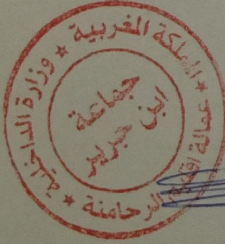 المملكة المغربية ★ وزارة الداخلية ★
عمالة إقليم الرحامنة ★
جماعة
ابن جرير